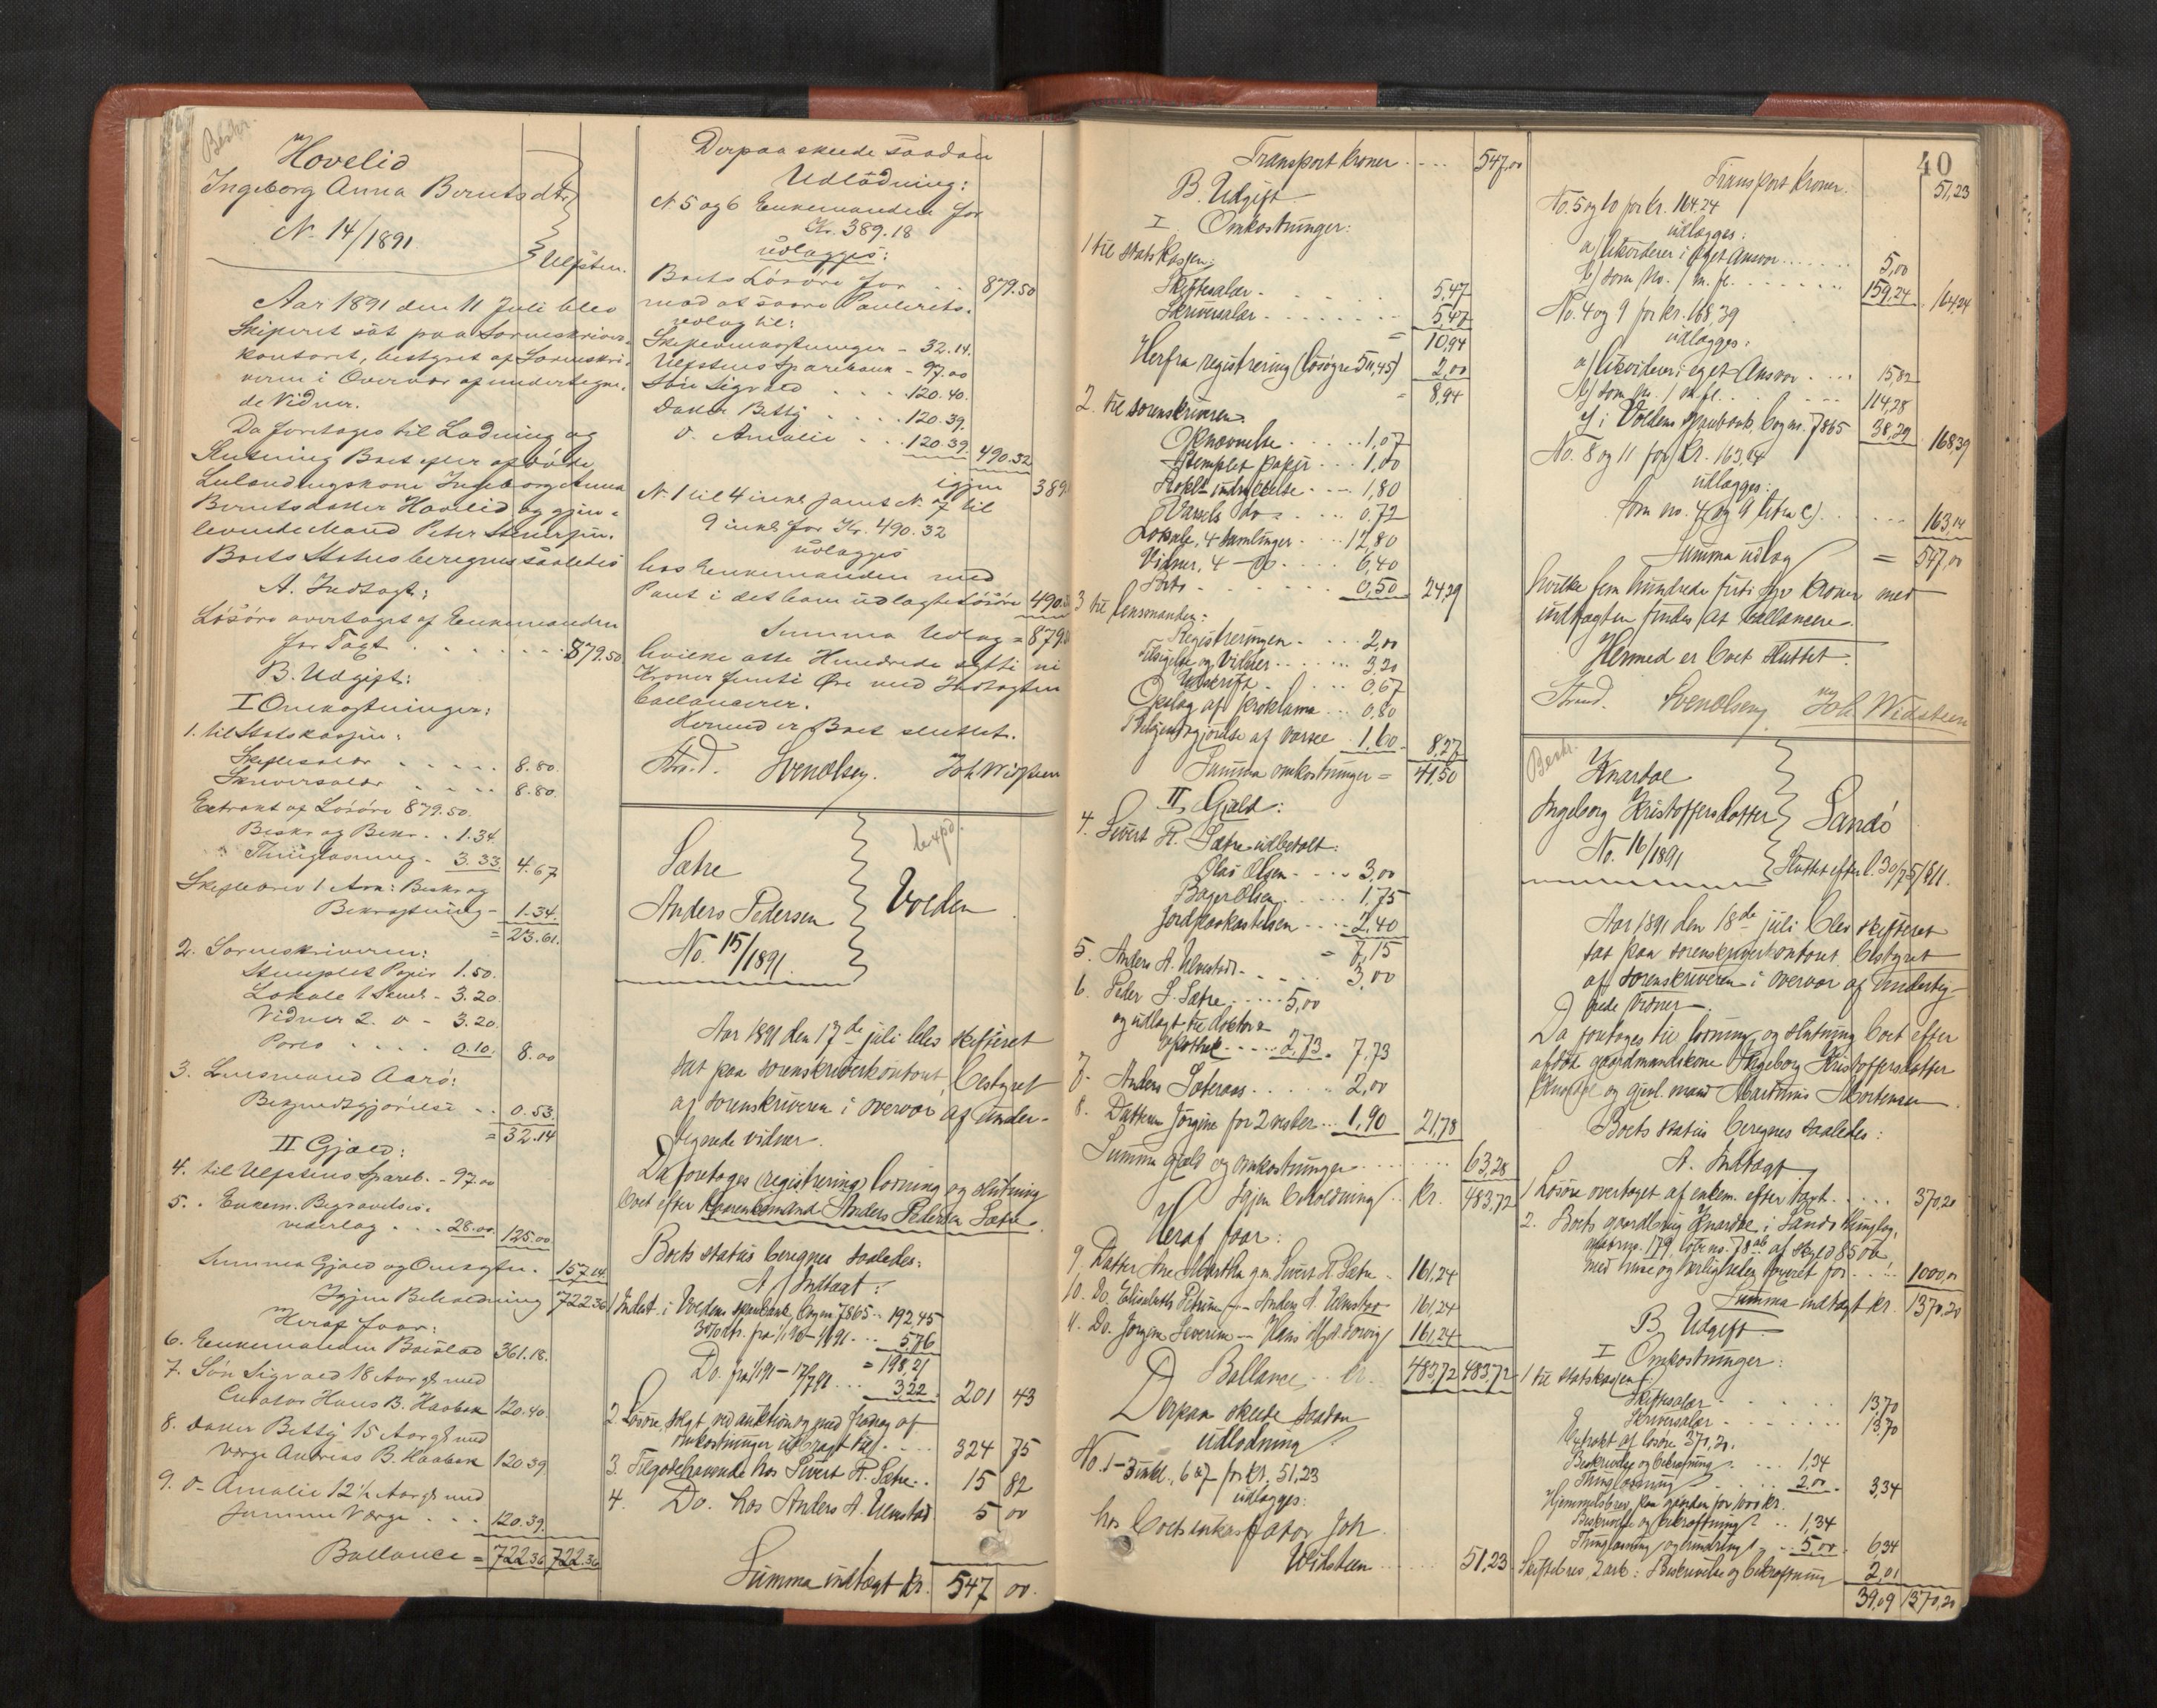 Beskr.
Hovelid
Ingeborg Anna Berntsdtr
N. 14/1891
Ulfsten.
Aar 1891 den 11 Juli blev
Skifteret sat paa Sorenskriver-
kontoret, bestyret af Sorenskri-
veren i Overvær af undertegne-
de Vidner.
Da foretoges til Lodning og
Slutning Boet efter afdöde
Ingeborg Anna
Berntsdatter Hovelid og gjen-
levende Mand Peter
Boets Status beregnes saaledes
A. Indtægt:
Lösöre overtaget af Enkemanden
for Taxt . . . . . . 879.50
B. Udgift:
I Omkostninger:
1. til Statskassen:
Skiftesalær . . . . . 8.80.
Skriversalær . . . . 8.80.
Extrakt af Lösöre 879.50.
Beskr og Bekr. . 1.34.
Thinglæsning - 3.33. 4.67
Skiftebrev 1 Ark: Beskr og
Bekræftning - 1.34.
= 23.61.
2. Sorenskriveren:
Stemplet Papir 1.50.
Lokale 1 Saml. - 3.20.
Vidner 2. o - 3.20.
Porto . . . . 0.10. 8.00
3. Lensmand Aarö:
Bekjendtgjörelse . . 0.53.
= 32.14
II Gjæld:
4. til Ulfstens Spareb. - 97.00
5. . Enkem. Begravelses-
vederlag . . . 28.00. 125.00
Summa Gjæld og Omkostn. . 157.14
Igjen Beholdning 722.36
Heraf faar:
6. Enkemanden Boeslod 361.18.
7. Sön Sigvald 18 Aar gl. med
Curator Hans B. Haabak 120.40.
8. Datter Betty 15 Aar gl. med
Verge Andreas B. Haabak 120.39
9. o- Amalie 12½ Aar gl. med
samme Verge . . . 120.39.
Ballance = 722.36 722.36
Derpaa skeede saadan
Udlodning:
N 5 og 6 Enkemanden for
Kr. 389.18
udlægges:
Boets Lösöre for . . 879.50
mod at svare Panterets-
udlæg til:
Skifteomkostninger - 32.14.
Ulfstens Sparebank - 97.00
Sön Sigvald . . . 120.40.
Datter Betty . . . 120.39.
o. Amalie . . . 120.39. 490.32
igjen 389.
N. 1 til 4 inkl samt N. 7 til
9 inkl for Kr. 490.32
udlægges
hos Enkemanden med
Pant i det ham udlagte Lösöre 490.
Summa Udlæg = 879.
hvilke otte Hundrede sytti ni
Kroner femti Øre med Indtægten
ballancerer.
Hermed er Boet sluttet.
Strand. Svendsen. Joh Widsteen
Expd.
Sætre
Anders Pedersen
No. 15/1891.
Volden
Aar 1891 den 17de juli blev skifteret
sat paa sorenskriverkontoret bestyret
af sorenskriveren i overvær af under-
tegnede vidner.
Da foretoges registrering, lodning og slutning
boet efter Anders Pedersen Sætre.
Boets status beregnes saaledes:
A. Indtægt:
1 Indest. i Voldens sparebank, bog no. 7865 .. 192,45
5,76
= 198,21
Do. fra 1/1 91 - 17/7 91 ... 3,22 201 43
2. Lösöre, solgt ved auktion og med fradrag af
omkostninger udbragt til . . . 324 75
3. Tilgodehavende hos Sivert R. Sætre . . 15 82
4. Do. hos Anders A. Ulvestad 5 00
Summa indtægt kr. 547 00.
Transport kroner . ... 547,00
B. Udgift
I Omkostninger:
1 til statskassen:
Skiftesalær . . . . . . 5,47
Skriversalær . . . . . . 5,47
= 10,94
Herfra registrering (lösöre 511,45) 2,00
= 8,94
2. til sorenskriveren
Opnævnelse . . . . 1,07
Stemplet papir . . . 1,00
Prokl. indrykkelse . . . 1,80
Varsels do . . . 0,72
Lokale, 4 samlinger . . . 12,80
Vidner, 4 - do . . . . 6,40
Porto . . . . . . . 0,50 24,29
3 til lensmanden:
Registreringen . . . . 2,00
Tilsigelse og vidner . . . . 3,20
Udskrift . . . . 0,67
Opslag af proklama . . . 0,80
Bekjendtgjörelse af varsel . 1,60 8,27
Summa omkostninger = 41,50
II, Gjæld:
4. Sivert R. Sætre udbetalt:
Olai Olsen . . . . 3,00
Bager Olsen . . . . 1,75
Jordpaakastelsen . . . . 2,40
= 7,15
5. Anders A. Ulvestad . . . . . 3,00
6. Peder S. Sætre . . . . 5,00
og udlagt til doktor &
apothek . . . . . 2,73. 7,73
7. Anders Sæteraas . . . . . 2,00
8. Datteren Jörgine for 2 vester . . . 1,90 21,78
Summa gjæld og omkostninger . . . . . . . 63,28
Igjen beholdning . . kr. 483,72
Heraf faar:
9. Datter Ane Martha g.m. Sivert R. Sætre . 161,24
10. Do. Elisabeth Petrine -"- Anders A. Ulvestad 161,24
11. Do. Jörgine Severine -"- Hans 161,24
Ballance kr. 483,72 483,72
Derpaa skede saadan
udlodning
No. 1-3 inkl., 6 & 7 for kr. 51,23
udlægges:
hos boets inkassator Joh
Widsteen . . . . . 51,23
40
Transport kroner . 51,23
No. 5 og 10 for kr. 164,24
udlægges:
a) likviderer i eget Ansvar . . . . . 5,00
b) som No. 1 m. fl. . . . . . . . 159,24 164,24
No. 4 og 9 for kr. 168,39
udlægges:
a) likviderer i eget Ansvar . . . . 15,82
b) som No. 1 m. fl. . . . . . . 114,28
c) i Voldens sparebank, bog nr. 7865 38,29 168,39
No. 8 og 11 for kr. 163,14
udlægges:
som no. 4 og 9 litra c) . . . . . . 163,14
Summa udlæg = 547,00
hvilke fem hundrede firti syv kroner med
indtægten findes at ballancere.
Hermed er boet sluttet.
Strand. Svendsen Joh Widsteen
Beskr.
Knardal
Ingeborg Kristoffersdatter
No. 16/1891
Sandö
Sluttet efter l. 30/7 5/8 11.
Aar 1891 den 18de juli blev skifteret
sat paa sorenskriverkontoret bestyret
af sorenskriveren i overvær af underteg-
nede vidner.
Da foretoges til lodning og slutning boet efter
afdöd gaardmandskone Ingeborg Kristoffersdatter
Knardal og gjenl. mand Martinus Mortensen
Boets status beregnes saaledes:
A. Indtægt
1 Lösöre overtaget af enkem. efter taxt . . . . . 370,20
2. Boets gaardbrug Knardal i Sandö thinglag,
matr.no. 179, löbe no. 78ab af skyld 85 öre
med huse og herligheder, for . . . 1000,00
Summa indtægt kr. 1370,20
B. Udgift
I Omkostninger:
1 til statskassen
Skiftesalær . . . . . 13,70
Skriversalær . . . . . . 13,70
Extrakt af lösöre 370,20.
Beskrivelse og bekræftning . . . . 1,34
Thinglæsning . . . . . 2,00. 3,34
Hjemmelsbrev paa gaarden for 1000 kr.
Beskrivelse og bekræftning . . 1,34
Thinglæsning . . 5,00 6,34
Skiftebrev, 2 ark: Beskrivelse og bekræftning 2,01
39,09 1370,20